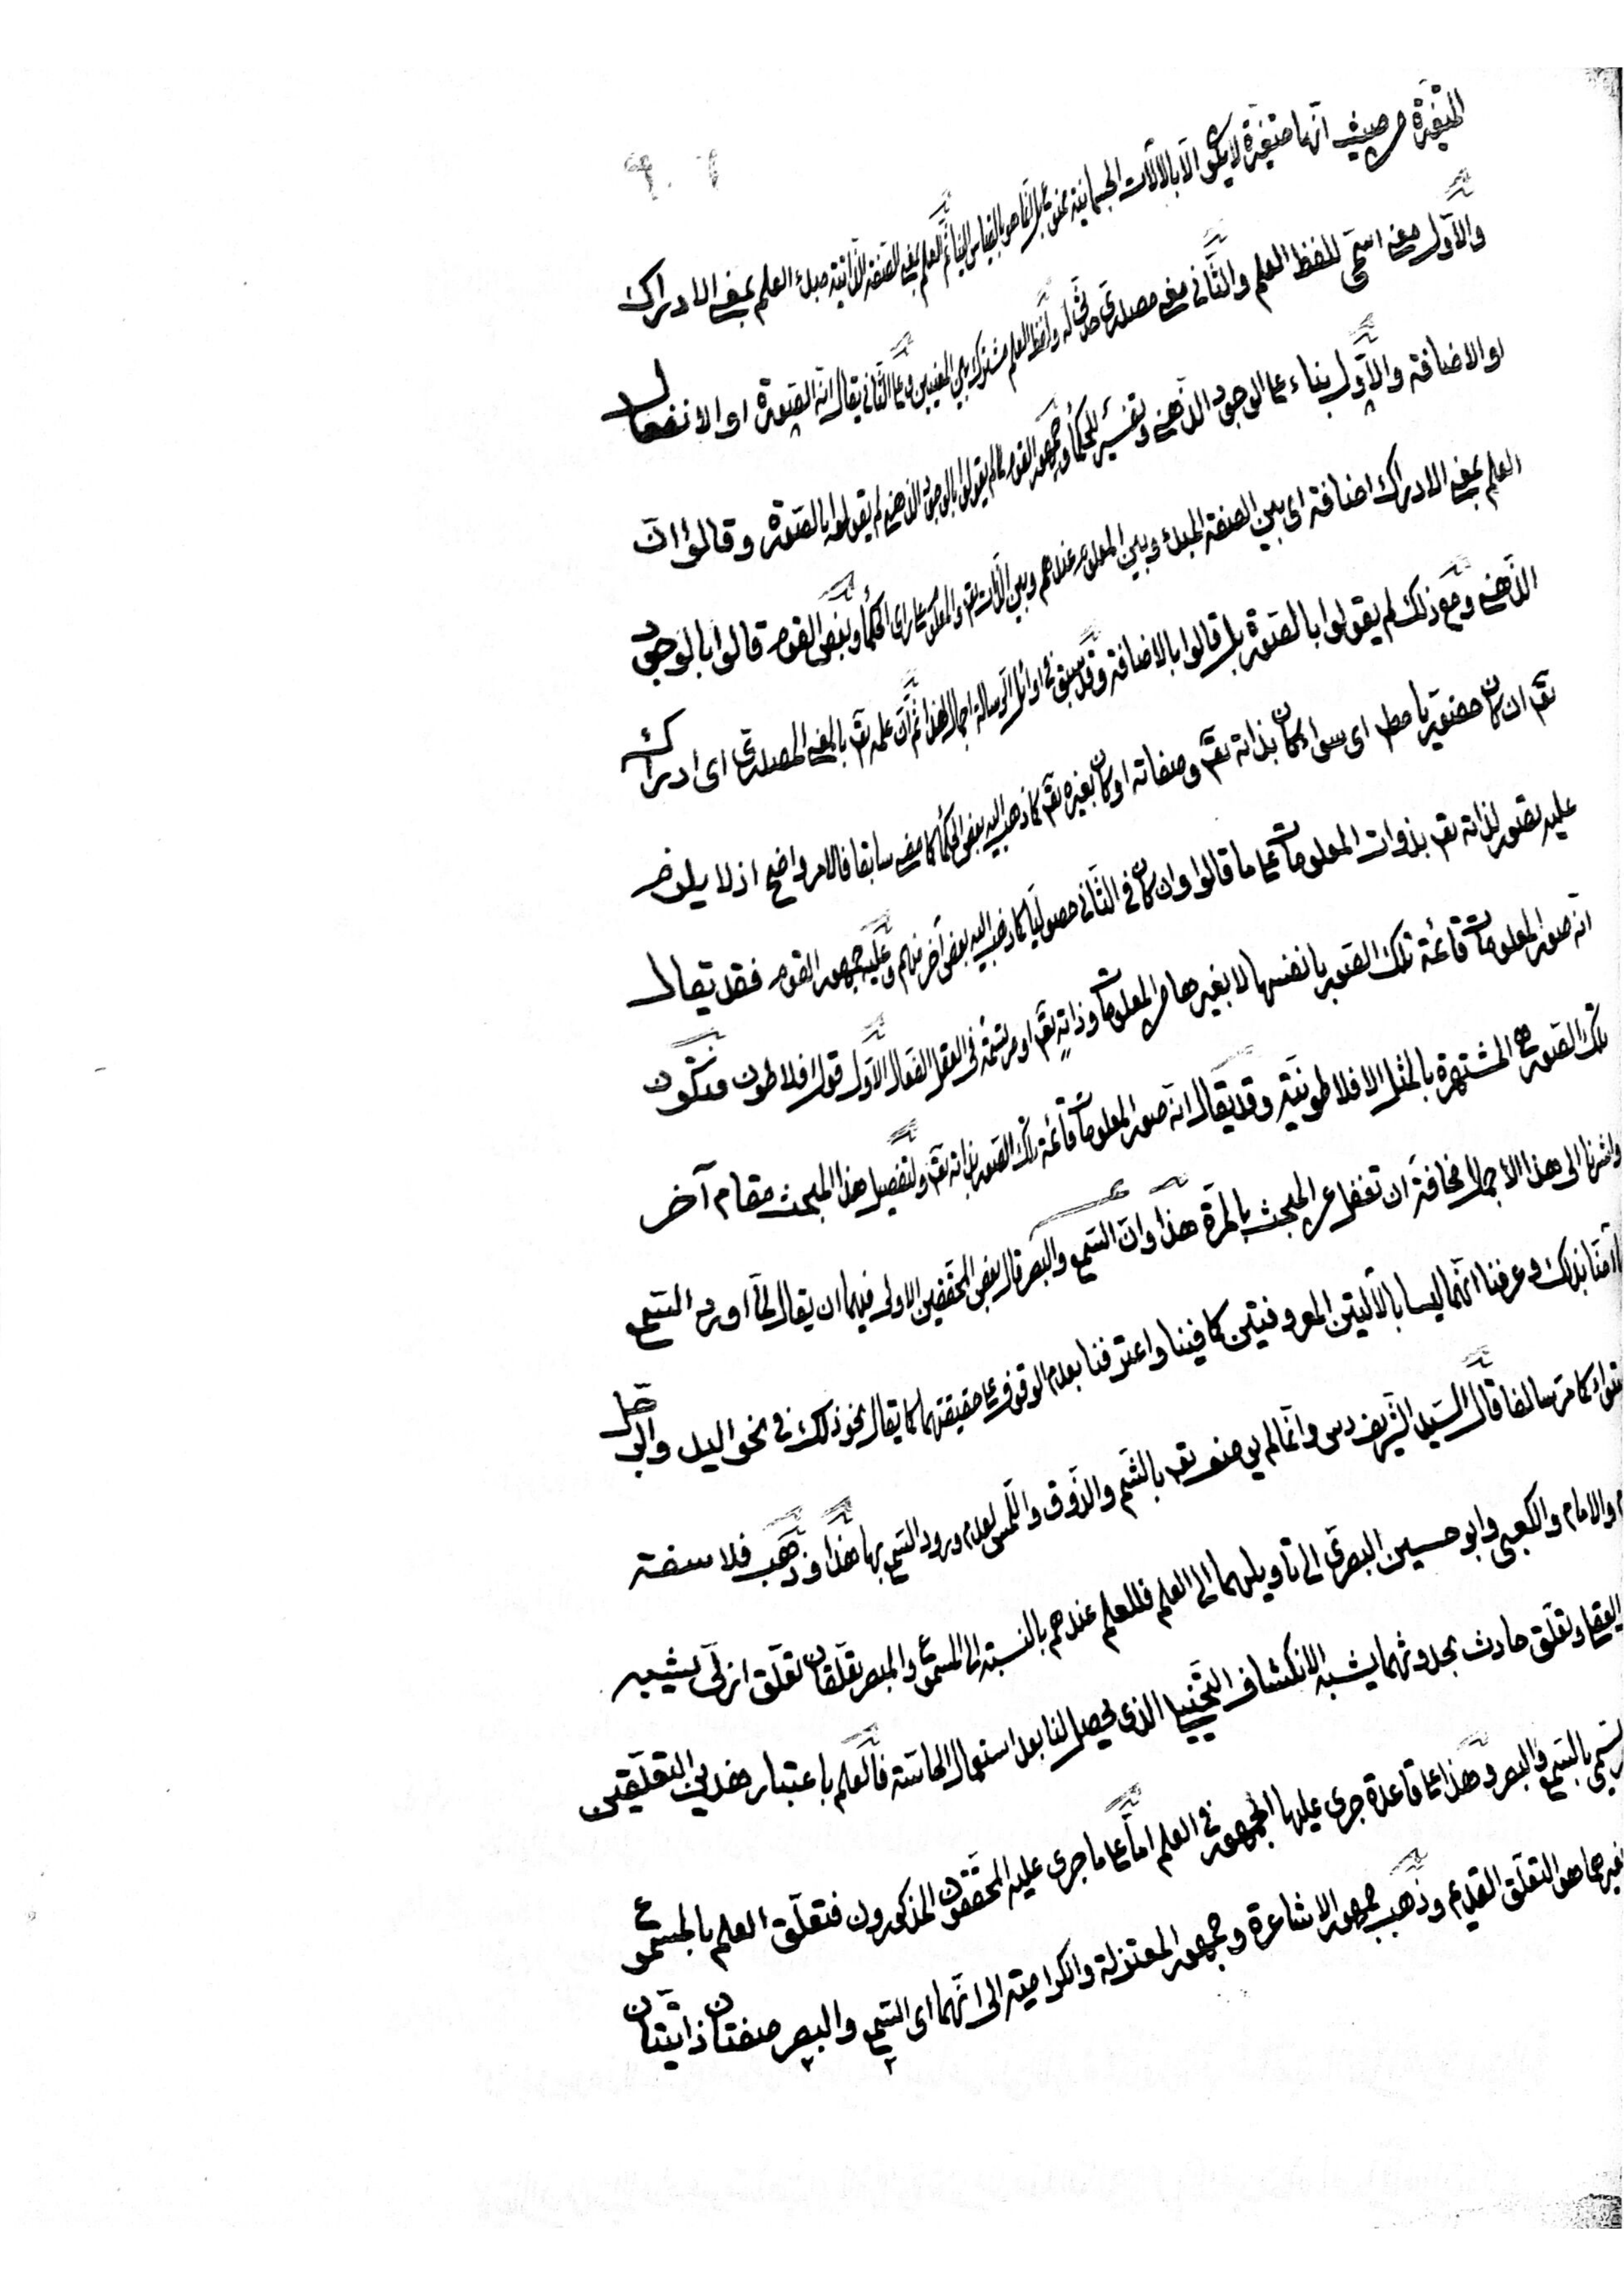 المتغيرة من حيث انها متغيرة لا يكون الا بالآلات الجسمانية ثم العلم بمعنى الصفة الذاتية مبدء العلم بمعنى الادراك
والأول معنى اسمي للفظ العلم والثاني معنى مصدري حدثي له ولفظ العلم مشترك بين المعنيين وعلى الثاني يقال انه الصورة او الانفعال
او الاضافة والأول بناء على الوجود الذهني وتفسير للحكماء وجمهور القوم لما لم يقولوا بالوجود الذهني لم يقولوا بالصورة وقالوا ان
العلم بمعنى الادراك اضافة اى بين الصفة المبدء وبين المعلوم عندهم وبين الذات تع والمعلوم على راى الحكماء وبعض القوم قالوا بالوجود
الذهني ومع ذلك لم يقولوا بالصورة بل قالوا بالاضافة وقد سبق في اوائل الرسالة اجمال هذا ثم ان علمه تع بالمعنى المصدري اى ادراك
تع ان كان حضوريا مط اى سواء كان بذاته تع وصفاته او كان بغيره تع كما ذهب اليه بعض الحكماء كما مضى سابقا فالامر واضح اذ لا يلزم
عليه تصور لذاته تع بذوات المعلومات على ما قالوا وان كان في الثاني حصوليا كما ذهب اليه بعض آخر منهم وعليه جمهور القوم فقد يقال
انه صور المعلومات قائمة تلك الصور بانفسها لا بغيرها من المعلومات وذاته تع او مرتسمة في العقل الفعال الأول قول افلاطون فتكون
تلك الصور هى المشتهرة بالمثل الافلاطونية وقد يقال انه صور المعلومات قائمة تلك الصور بذاته تع ولتفصيل هذا المبحث مقام آخر
واشرنا الى هذا الاجمال مخافة ان تغفل عن المبحث بالمرة هذا وان السمع والبصر قال بعض المحققين الاولى فيهما ان يقال لما اورد السمع
آمنا بذلك وعرفنا انهما ليسا بالآلتين المعروفتين كما فينا واعترفنا بعدم الوقوف على حقيقتهما كما يقال نحو ذلك في نحو اليد والرجل
كما مر سالفا قال السيد الشريف وانما لم يوصف تع بالشم والذوق واللمس لعدم ورود السمع بها هذا وذهب فلاسفة
والامام والكعبي وابو حسين البصري الى تأويلهما الى العلم فللعلم عندهم بالنسبة الى المسموع والمبصر تعلقان تعلق ازلي يشبه
وتعلق حادث بحدوثهما يشبه الانكشاف الذي يحصل لنا بعد استعمال الحاسة فالعلم باعتبار هذين التعلقين
يسمى بالسمع والبصر وهذا على قاعدة جرى عليها الجمهور في العلم اما على ما جرى عليه المحققون المذكورون فتعلق العلم بالمسموع
هو التعلق القديم وذهب جمهور الاشاعرة وجمهور المعتزلة والكرامية الى انهما اى السمع والبصر صفتان ذاتيتان